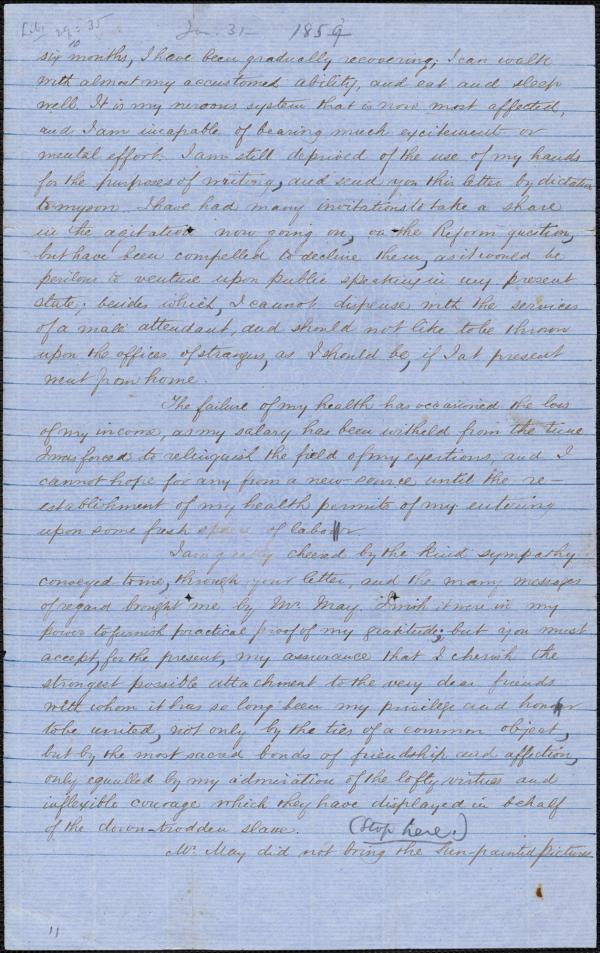 Lib. 29:35 Jan. 31 1859
six months, I have been gradually recovering; I can walk
with almost my accustomed ability, and eat and sleep
well. It is my nervous system that is now most affected,
and I am incapable of bearing much excitement or
mental effort. I am still deprived of the use of my hands
for the purposes of writing, and send you this letter by dictation
to my son. I have had many invitations to take a share
in the agitation now going on, on the Reform question,
but have been compelled to decline them, as it would be
perilous to venture upon public speaking in my present
state; besides which, I cannot dispense with the services
of a male attendant, and should not like to be thrown
upon the offices of strangers, as I should be, if I at present
went from home.
The failure of my health has occasioned the loss
of my income, as my salary has been witheld from the time
I was forced to relinquish the field of my exertions, and I
cannot hope for any from a new source until the re-
establishment of my health permits of my entering
upon some fresh space of labor.
I am greatly cheered by the kind sympathy
conveyed to me, through your letter, and the many messages
of regard brought me by Mr. May. I wish it were in my
power to furnish practical proof of my gratitude; but you must
accept, for the present, my assurance that I cherish the
strongest possible attachment to the very dear friends
with whom it has so long been my privilege and honor
to be united, not only by the ties of a common object,
but by the most sacred bonds of friendship and affection,
only equalled by my admiration of the lofty virtues and
inflexible courage which they have displayed in behalf
of the down-trodden slave. (Stop here.)
Mr. May did not bring the sun-painted pictures
11